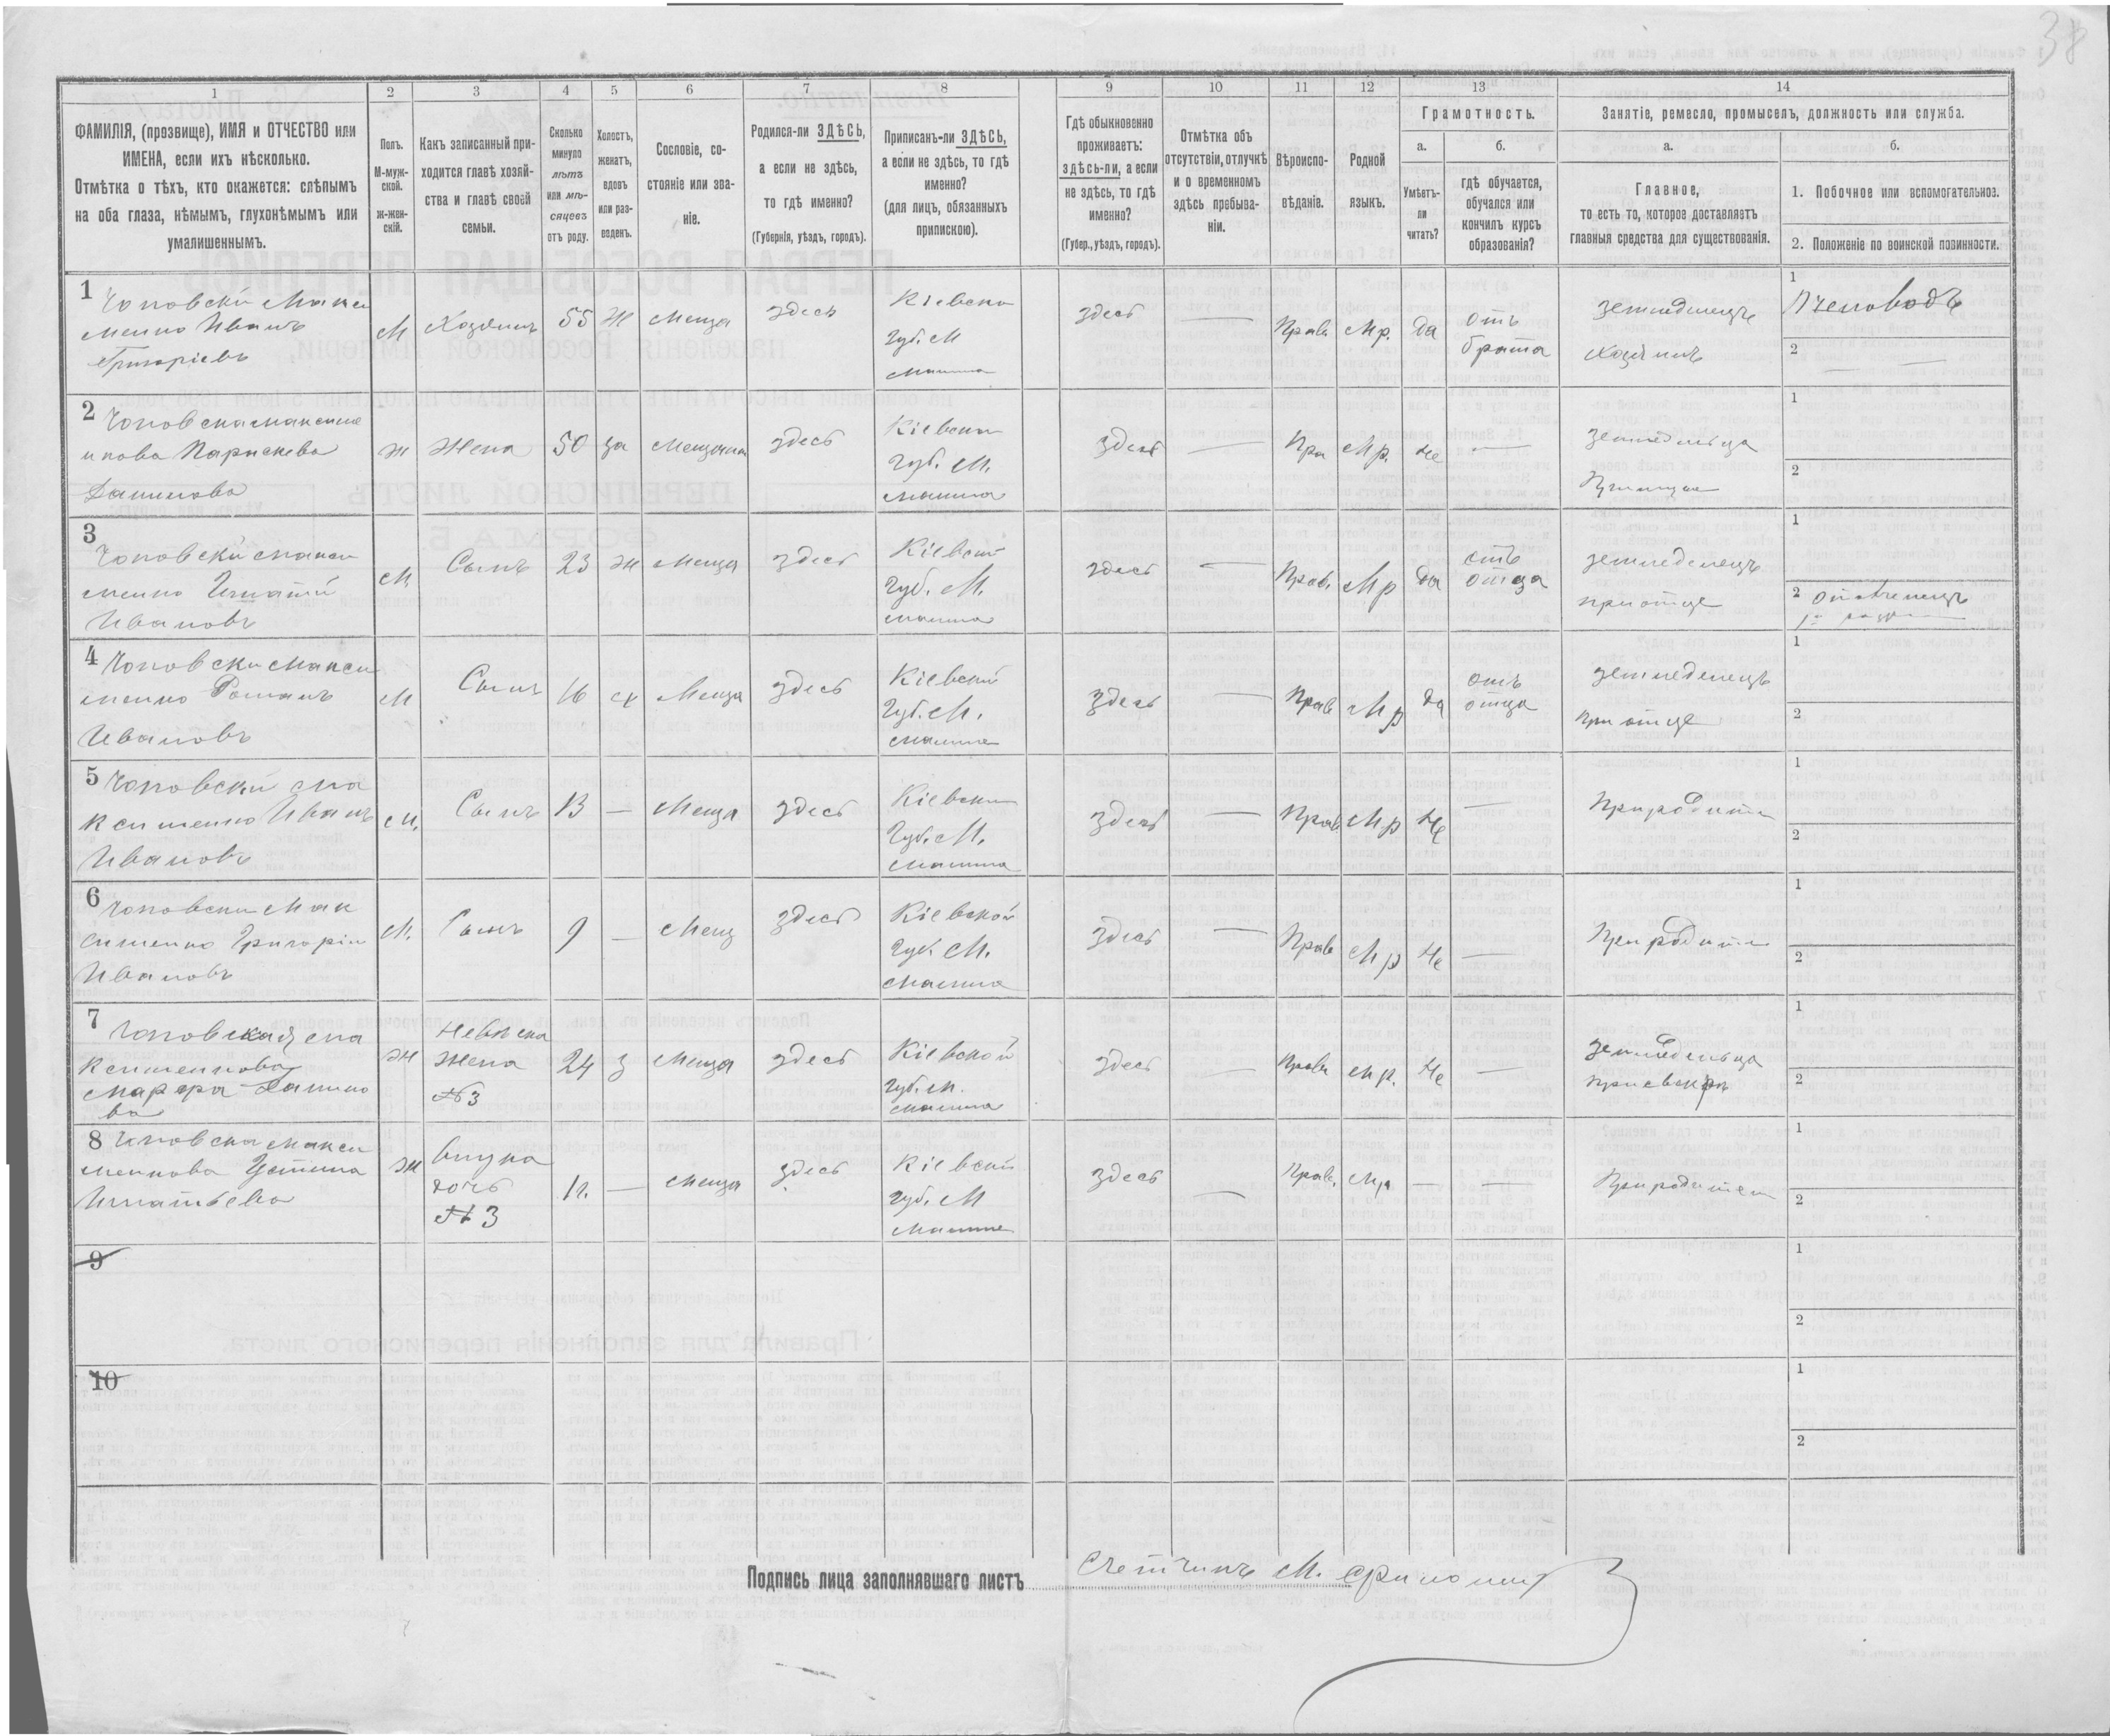 38
1 2 3 4 5 6 7 8 9 10 11 12 13 14
ФАМИЛІЯ, (прозвище), ИМЯ и ОТЧЕСТВО или
ИМЕНА, если ихъ нѣсколько.
Отмѣтка о тѣхъ, кто окажется: слѣпымъ
на оба глаза, нѣмымъ, глухонѣмымъ или
умалишеннымъ.
Полъ.
М-муж-
ской.
ж-жен-
скій.
Какъ записанный при-
ходится главѣ хозяй-
ства и главѣ своей
семьи.
Сколько
минуло
лѣтъ
или мѣ-
сяцевъ
отъ роду.
Холостъ,
женатъ,
вдовъ
или раз-
веденъ.
Сословіе, со-
стояніе или зва-
ніе.
Родился-ли ЗДѢСЬ,
а если не здѣсь,
то гдѣ именно?
(Губернія, уѣздъ, городъ).
Приписанъ-ли ЗДѢСЬ,
а если не здѣсь, то гдѣ
именно?
(для лицъ, обязанныхъ
припискою).
Гдѣ обыкновенно
проживаетъ:
здѣсь-ли, а если
не здѣсь, то гдѣ
именно?
(Губер., уѣздъ, городъ).
Отмѣтка объ
отсутствіи, отлучкѣ
и о временномъ
здѣсь пребыва-
ніи.
Вѣроиспо-
вѣданіе.
Родной
языкъ.
Грамотность.
а.
Умѣетъ-
ли
читать?
б.
гдѣ обучается,
обучался или
кончилъ курсъ
образованія?
Занятіе, ремесло, промыселъ, должность или служба.
а.
Главное,
то есть то, которое доставляетъ
главныя средства для существованія.
б.
1. Побочное или вспомогательное.
2. Положеніе по воинской повинности.
1 Чоповскій Макси
менко Иванъ
Григоріевъ
М
Хозяинъ
55
Ж
Меща
здесь
Кіевской
Губ. М
здесь
—
Прав
Мр.
да
отъ
брата
земледелецъ
хозяинъ
1 Пчеловодъ
2 —
2 Чоповска Максиме
нкова Параскева
Данилова
ж
Жена
50
за
Мещанка
здесь
Кіевской
Губ. М.
здесь
—
Пра
Мр.
Не
—
земледелица
1
2
3 Чоповскій Макси
менко Игнатій
Ивановъ
М.
Сынъ
23
ж
Меща
здесь
Кіевской
Губ. М.
здесь
—
Прав.
Мр
да
отъ
отца
земледелецъ
при отце
1
2 ополченецъ
4 Чоповски Макси
менко Романъ
Ивановъ
М
Сынъ
16
х
Меща
здесь
Кіевской
Губ. М.
здесь
—
Прав
Мр
да
отъ
отца
земледелецъ
при отце
1
2
5 Чоповскій Ма
ксименко Иванъ
Ивановъ
М.
Сынъ
13
—
Меща
здесь
Кіевской
Губ. М.
здесь
—
Прав
Мр
Не
—
При родите
1
2
6 Чоповски Мак
сименко Григорій
Ивановъ
М.
Сынъ
9
—
Мещ
здесь
Кіевской
Губ. М.
здесь
—
Прав
Мр
Не
—
При родите
1
2
7 Чоповская Ма
ксименкова
Марфа Данило
ва
ж
Невѣска
жена
№3
24
з
Меща
здесь
Кіевской
Губ. М.
здесь
—
Прав
Мр.
Не
—
земледелица
при свекре
1
2
8 Чоповска Макси
менкова Устина
Игнатьева
ж
внука
дочь
№3
1г.
—
Меща
здесь
Кіевской
Губ. М
здесь
—
Прав.
Мр
—
—
При родител
1
2
9
1
2
10
1
2
Подпись лица заполнявшаго листъ Счетчикъ М.